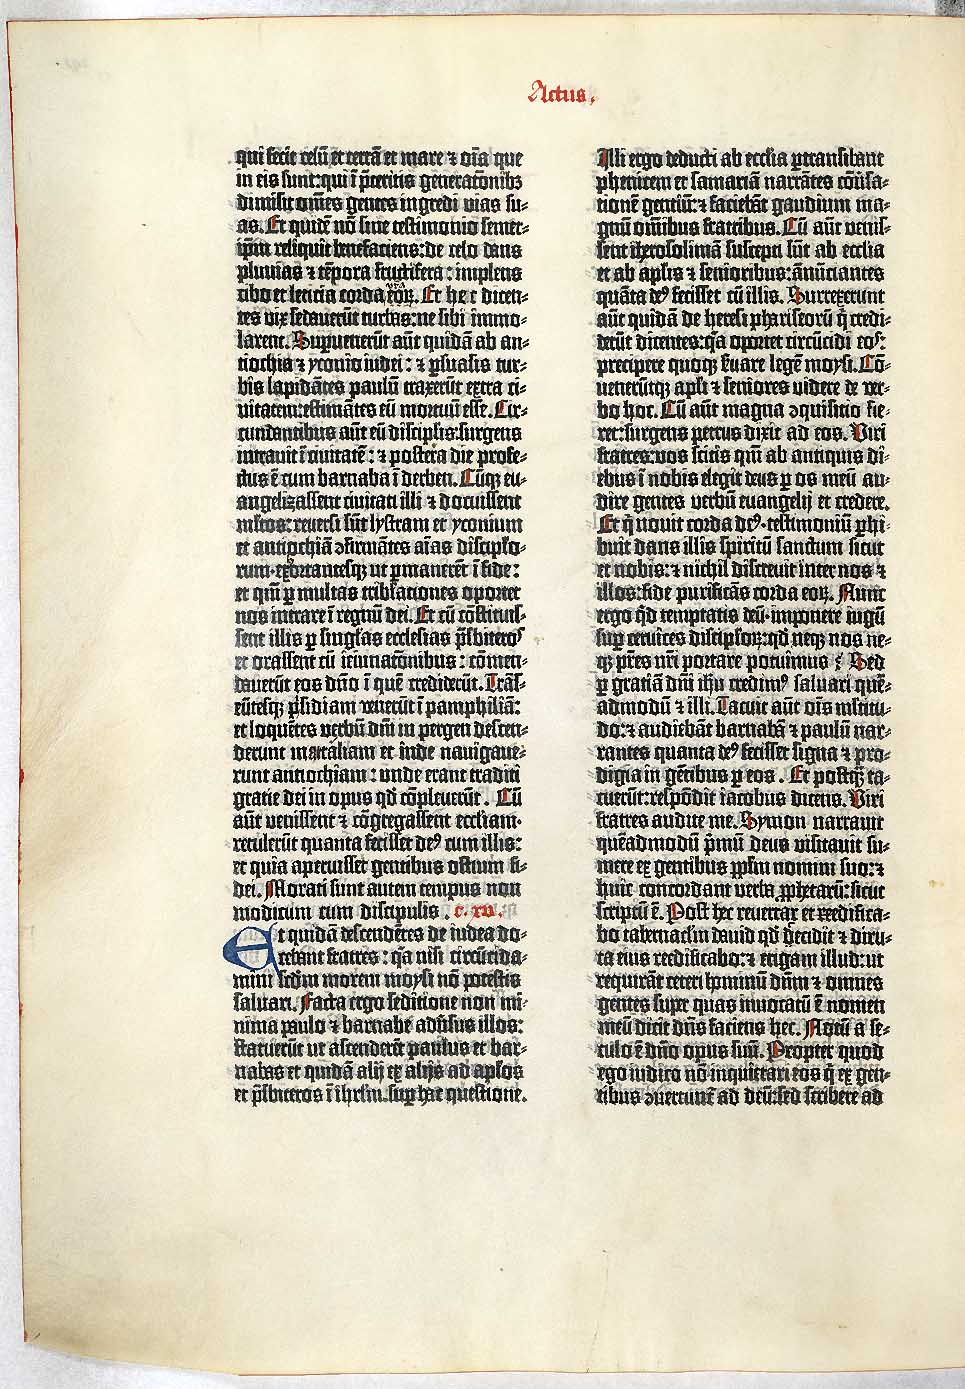 Actus.
qui fecit celū et terrā et mare ⁊ oīa que
in eis sunt: qui ī p̄teritis generatōnibꝫ
dimisit om̄es gentes ingredi vias su-
as. Et quidē nō sine testimonio semet-
ip̄m reliquit benefaciens: de celo dans
pluvias ⁊ tēpora fructifera: implens
cibo et leticia corda eoꝝ. Et hec dicen-
tes vix sedaverūt turbas: ne sibi immo-
larent. Supvenerūt aūt quidā ab an-
tiochia ⁊ yconio iudei: ⁊ ꝑsuasis tur-
bis lapidātes paulū traxerūt extra ci-
vitatem: estimātes eū mortuū esse. Cir-
cundantibus aūt eū discipl̓is: surgens
intravit ī civitatē: ⁊ postera die profe-
ctus ē cum barnaba ī derben. Cūqꝫ eu-
angelizassent civitati illi ⁊ docuissent
ml̓tos: reversi sūt lystram et yconium
et antiochiā ↄfirmātes aīas discipl̓o-
rum· exhortantesqꝫ ut ꝑmanerēt ī fide:
et qm̄ ꝑ multas tribl̓ationes oportet
nos intrare ī regnū dei. Et cū cōstituis-
sent illis ꝑ singl̓as ecclesias p̄sbiteros
et orassent cū ieiunatōnibus: cōmen-
daverūt eos dn̄o ī quē crediderūt. Trās-
eūtesqꝫ p̄sidiam venerūt ī pamphiliā:
et loquētes verbū dn̄i in pergen descen-
derunt in attaliam et inde navigave-
runt antiochiam: unde erant traditi
gratie dei in opus qd̓ cōpleverūt. Cū
aūt venissent ⁊ cōgregassent eccliam·
retulerūt quanta fecisset deꝰ cum illis:
et quia aperuisset gentibus ostium fi-
dei. Morati sunt autem tempus non
modicum cum discipulis. c. xv.
Et quidā descendētes de iudea do-
cebant fratres: qa nisi circūcida-
mini scd̓m morem moysi nō potestis
salvari. Facta ergo seditione non mi-
nima paulo ⁊ barnabe adv̓sus illos:
statuerūt ut ascenderēt paulus et bar-
nabas et quidā alij ex alijs ad apl̓os
et p̄sbiteros ī ihrl̓m sup hac questione.
Illi ergo deducti ab ecclīa ꝑtransibant
phenicem et samariā narrātes cōv̓sa-
tionē gentiū: ⁊ faciebāt gaudium ma-
gnū omībus fratribus. Cū aūt venis-
sent iherosolimā suscepti sūt ab ecclīa
et ab apl̓is ⁊ senioribus: ānūciantes
quāta deꝰ fecisset cū illis. Surrexerunt
aūt quidā de heresi phariseorū q̄ credi-
derūt dicentes: qa oportet circūcidi eos:
precipere quoqꝫ s̓vare legē moysi. Cō-
venerūtqꝫ apl̓i ⁊ seniores videre de ver-
bo hoc. Cū aūt magna ↄquisitio fie-
ret: surgens petrus dixit ad eos. Viri
fratres: vos scitis qm̄ ab antiquis di-
ebus ī nobis elegit deus ꝑ os meū au-
dire gentes verbū euangelij et credere.
Et q̄ novit corda deꝰ· testimoniū ꝑhi-
buit dans illis spiritū sanctum sicut
et nobis: ⁊ nichil discrevit inter nos ⁊
illos: fide purificās corda eoꝝ. Nunc
ergo qd̓ temptatis deū· imponere iugū
sup cervices discipl̓oꝝ: qd̓ neqꝫ nos ne-
qꝫ pr̄es nr̄i portare potuimus? Sed
ꝑ gratiā dn̄i ihū credimꝰ salvari quē-
admodū ⁊ illi. Tacuit aūt oīs mltitu-
do: ⁊ audiebāt barnabā ⁊ paulū nar-
rantes quanta deꝰ fecisset signa ⁊ pro-
digia in gētibus ꝑ eos. Et postqꝫ ta-
cuerūt: respōdit iacobus dicens. Viri
fratres audite me. Symon narravit
quēadmodū p̄mū deus visitavit su-
mere ex gentibus ppl̓m nomini suo: ⁊
huic concordant verba ꝓphetarū: sicut
scriptū ē. Post hec revertar et reedifica-
bo tabernacl̓m david qd̓ decidit ⁊ diru-
ta eius reedificabo: ⁊ erigam illud: ut
requirāt ceteri hominū dn̄m ⁊ omnes
gentes super quas invocatū ē nomen
meū dicit dn̄s faciens hec. Notū a se-
culo ē dn̄o opus suū. Propter quod
ego iudico nō inquietari eos q̄ ex gen-
tibus ↄvertunt̄ ad deū: sed scribere ad